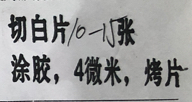 切白片10-15张
涂胶，4微米，烤片